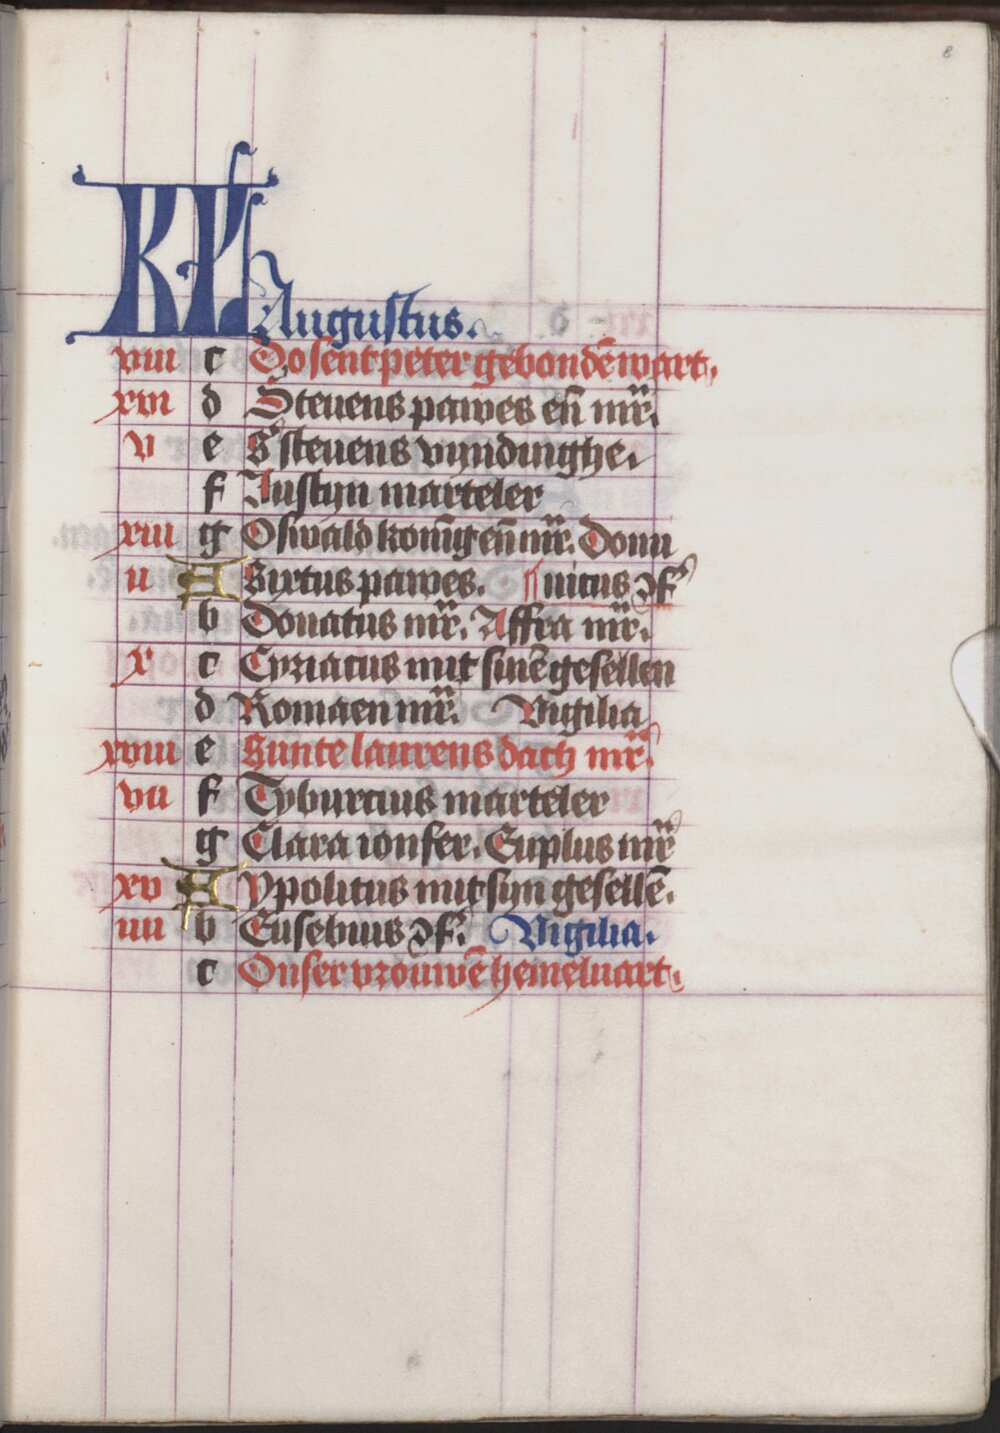 8
KL Augustus.
viii c Do sent peter gebondē wart.
xvi d Steuens pawes eñ mr̄.
v e S steuens vyndinghe.
f Iustyn marteler
xiii g Oswald konīg eñ mr̄. Donu
ii A Sixtus pawes. ¶ nicus ꝯfꝰ
b Donatus mr̄. Affra mr̄.
x c Cyriacus mit sinē gesellen
d Romaen mr̄. Vigilia
xviii e Sunte laurens dach mr̄.
vii f Tyburcius marteler
g Clara ionfer. Euplus mr̄
xv A Ypolitus mit syn gesellē.
iiii b Eusebius ꝯfꝰ. Vigilia.
c Onser vrouwē hemeluart.